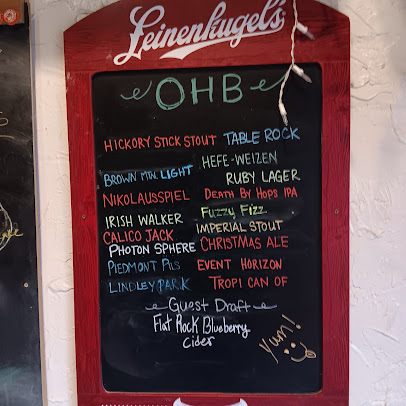 Leinenkugel's
OHB
HICKORY STICK STOUT TABLE ROCK
HEFE-WEIZEN
BROWN MTN. LIGHT RUBY LAGER
NIKOLAUSSPIEL DEATH BY HOPS IPA
IRISH WALKER FUZZY FIZZ
CALICO JACK IMPERIAL STOUT
PHOTON SPHERE CHRISTMAS ALE
PIEDMONT PILS EVENT HORIZON
LINDLEY PARK TROPI CAN OF
Guest Draft
Flat Rock Blueberry
Cider
Yum!